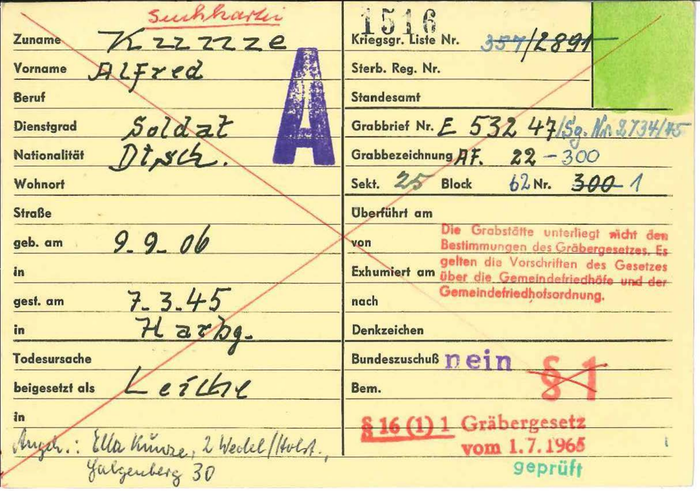 Suchkartei
1516
Zuname Kunze
Vorname Alfred
Beruf
Dienstgrad Soldat
Nationalität Dtsch.
Wohnort
Straße
geb. am 9.9.06
in
gest. am 7.3.45
in Harbg.
Todesursache
beigesetzt als Leiche
in
Angeh.: Ella Kunze, 2 Wedel/Holst.,
Galgenberg 30
A
Kriegsgr. Liste Nr. 357/2891
Sterb. Reg. Nr.
Standesamt
Grabbrief Nr. E 532 47/Sg. Nr. 2734/45
Grabbezeichnung AF. 22-300
Sekt. 25 Block 62 Nr. 300 1
Überführt am
von
Exhumiert am
nach
Die Grabstätte unterliegt nicht den
Bestimmungen des Gräbergesetzes. Es
gelten die Vorschriften des Gesetzes
über die Gemeindefriedhöfe und der
Gemeindefriedhofsordnung.
Denkzeichen
Bundeszuschuß nein
Bem.
§ 1
§ 16 (1) 1 Gräbergesetz
vom 1.7.1965
geprüft